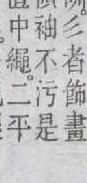 彡者飾畫
袖不污是
中繩。二平